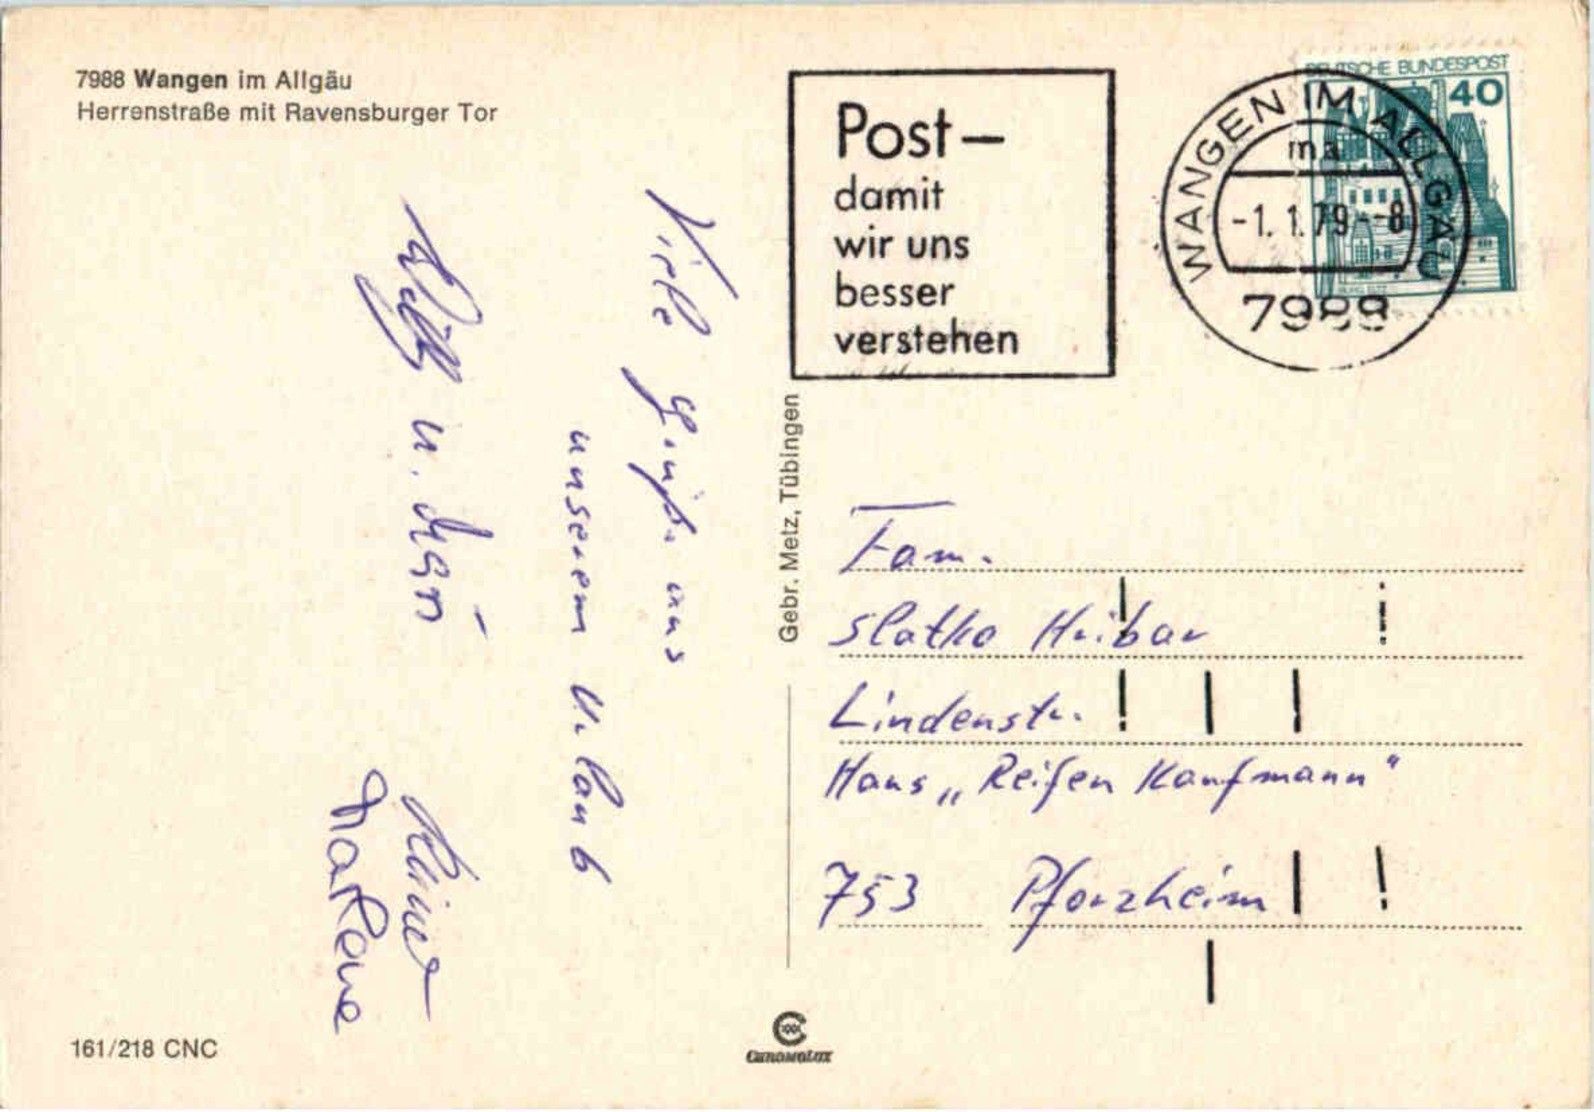 7988 Wangen im Allgäu
Herrenstraße mit Ravensburger Tor
Post –
damit
wir uns
besser
verstehen
WANGEN IM ALLGÄU
ma
-1.1.79--8
7988
DEUTSCHE BUNDESPOST
40
Viele Grüße aus
unserem Urlaub
Willy u.
Rainer
Marlene
Gebr. Metz, Tübingen
Fam.
Slatko Hribar
Lindenstr.
Haus „Reifen Kaufmann"
753 Pforzheim
161/218 CNC
CHROMOLUX